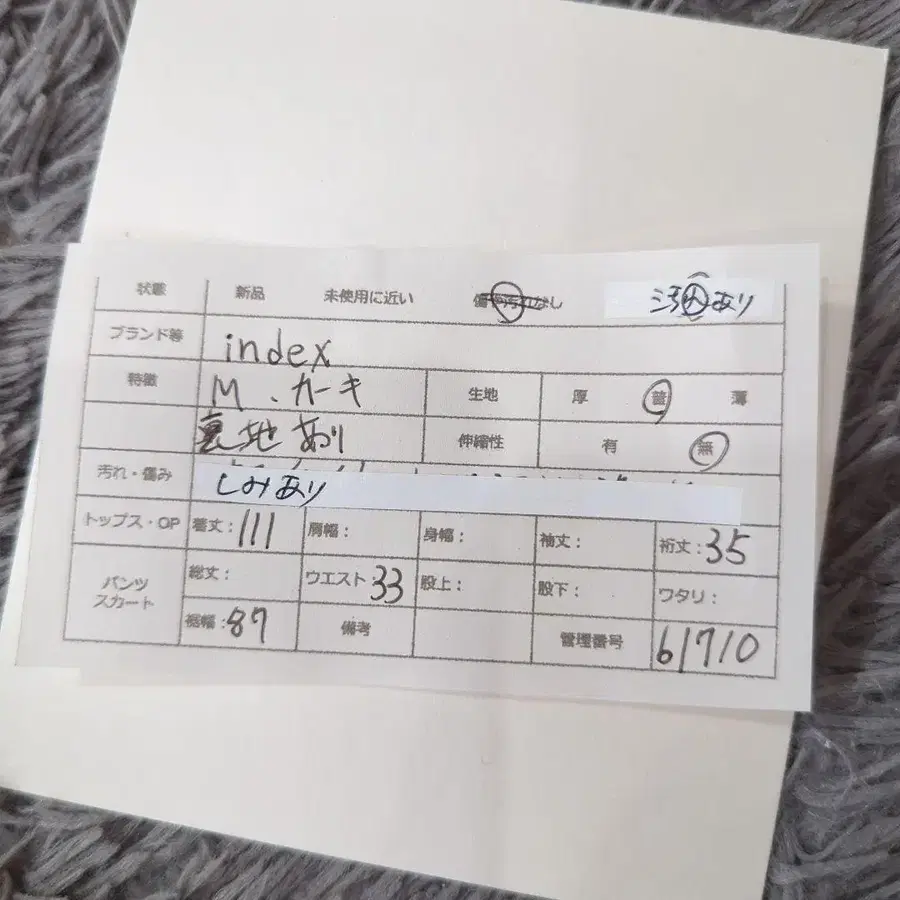 状態 新品 未使用に近い 傷や汚れなし 汚れあり
ブランド等 index
特徴 M、カーキ 生地 厚 普 薄
裏地あり 伸縮性 有 無
汚れ・傷み しみあり
トップス・OP 着丈：111 肩幅： 身幅： 袖丈： 裄丈：35
パンツ スカート 総丈： ウエスト 33 股上： 股下： ワタリ：
裾幅：87 備考 管理番号 61710